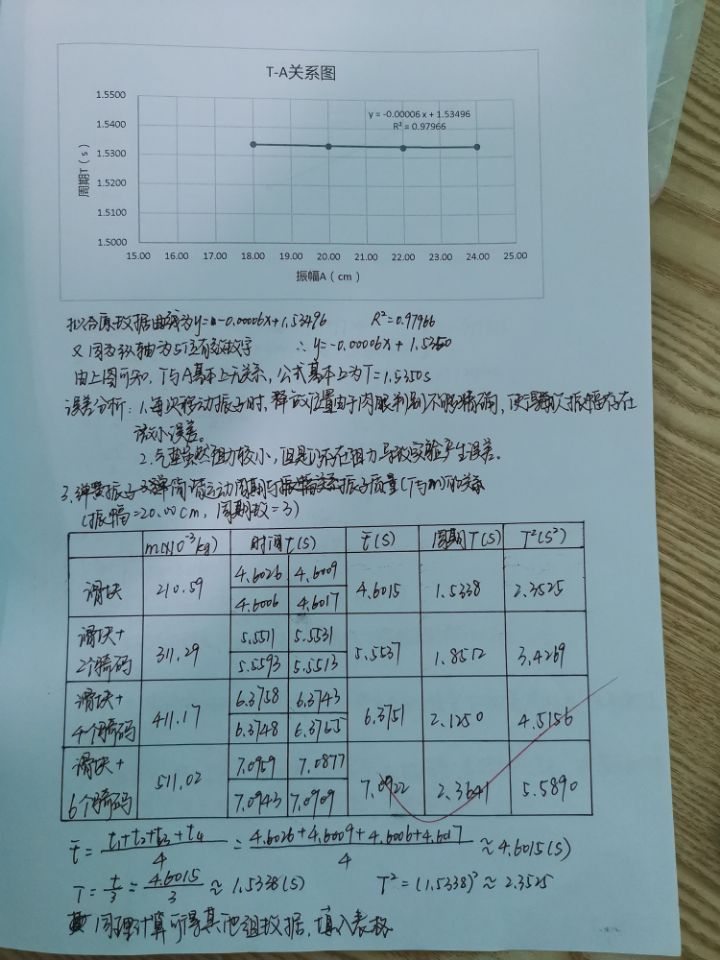 T-A关系图
1.5500
1.5400
1.5300
1.5200
1.5100
1.5000
周期T（s）
y = -0.00006x + 1.53496
R² = 0.97966
15.00 16.00 17.00 18.00 19.00 20.00 21.00 22.00 23.00 24.00 25.00
振幅A（cm）
拟合原数据曲线为y=-0.00006x+1.53496 R²=0.97966
又因为纵轴为5位有效数字 ∴ y=-0.00006x+1.5350
由上图可知，T与A基本上无关系，公式基本上为T=1.5350s
误差分析：1.每次移动振子时，释放位置由于肉眼判别不够精确，使得每次振幅存在
微小误差。
2.气垫虽然阻力较小，但是仍存在阻力，导致实验产生误差。
3.弹簧振子简谐运动周期与振子质量(T与m)的关系
(振幅=20.00cm，周期数=3)
m(×10⁻³kg) 时间t(s) t̄(s) 周期T(s) T²(s²)
滑块 210.59 4.6026 4.6009 4.6015 1.5338 2.3525
4.6006 4.6017
滑块+ 311.29 5.5511 5.5531 5.5537 1.8512 3.4269
2个骑码 5.5593 5.5513
滑块+ 411.17 6.3758 6.3743 6.3751 2.1250 4.5156
4个骑码 6.3748 6.3755
滑块+ 511.02 7.0959 7.0877 7.0922 2.3641 5.5890
6个骑码 7.0943 7.0909
t̄ = (t₁+t₂+t₃+t₄)/4 = (4.6026+4.6009+4.6006+4.6017)/4 ≈ 4.6015(s)
T = t̄/3 = 4.6015/3 ≈ 1.5338(s) T² = (1.5338)² ≈ 2.3525
同理计算可得其他组数据，填入表格